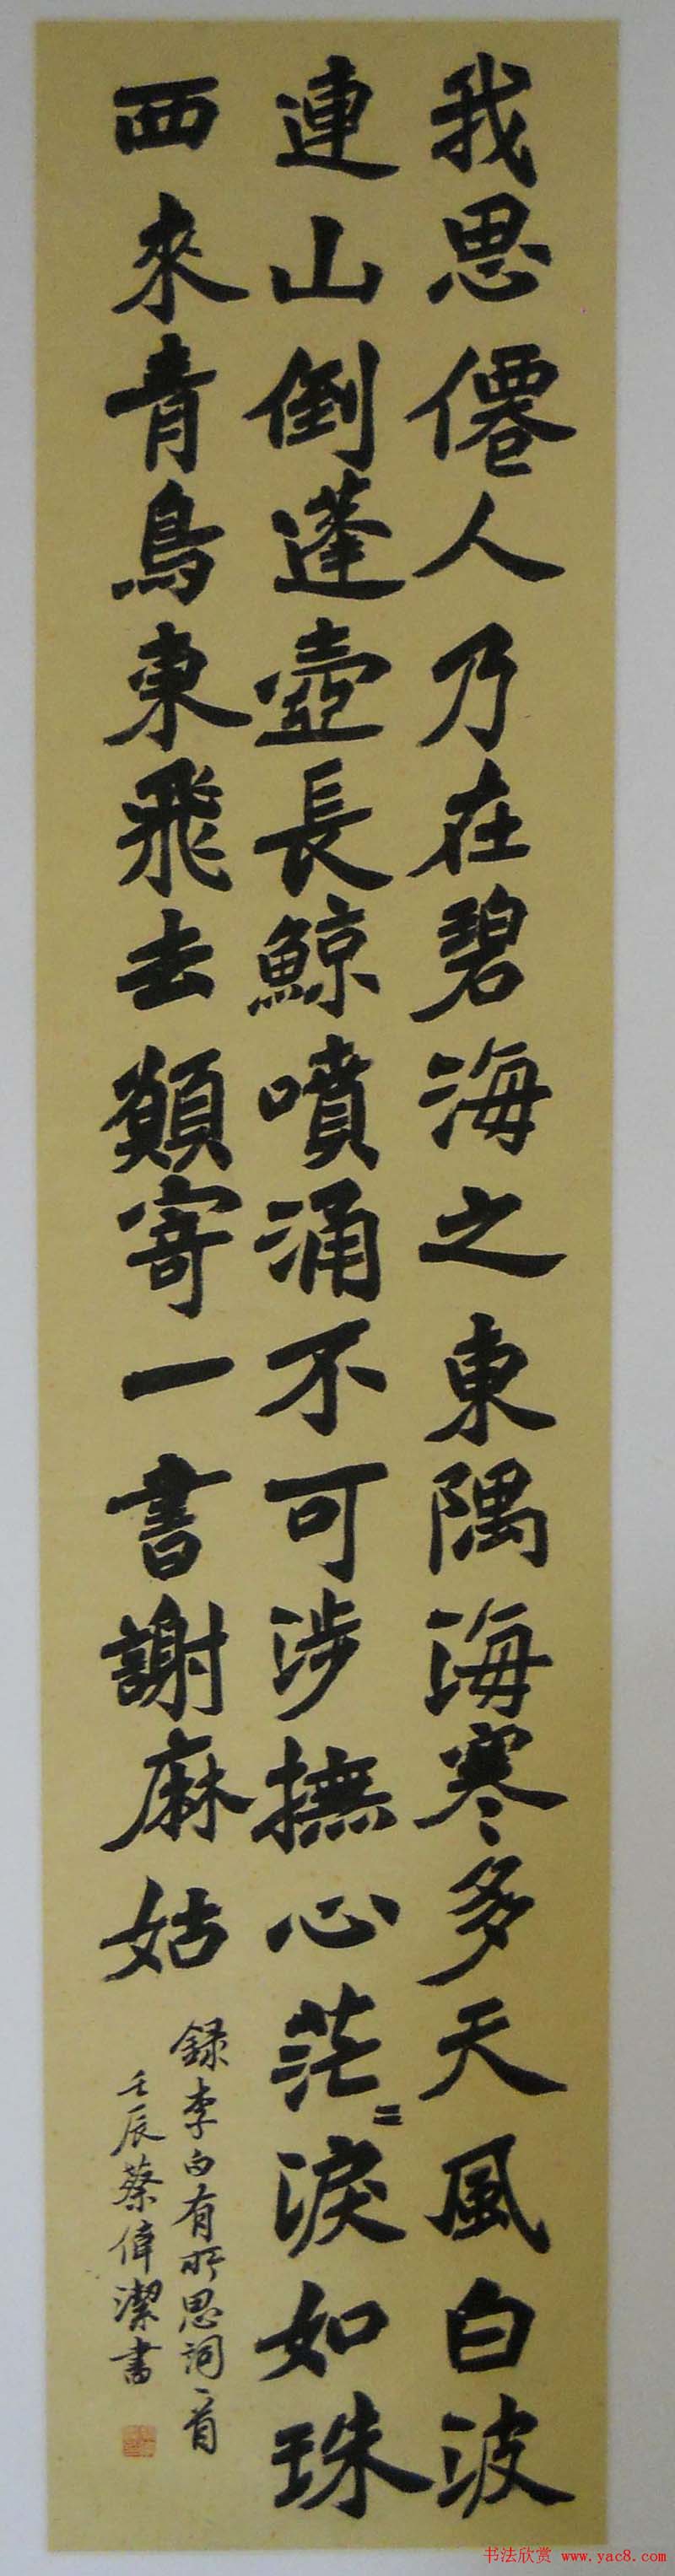 我思僊人乃在碧海之東隅海寒多天風白波
連山倒蓬壺長鯨噴涌不可涉撫心茫〻淚如珠
西來青鳥東飛去願寄一書謝麻姑
録李白有所思詞一首
壬辰蔡偉潔書
书法欣赏 www.yac8.com